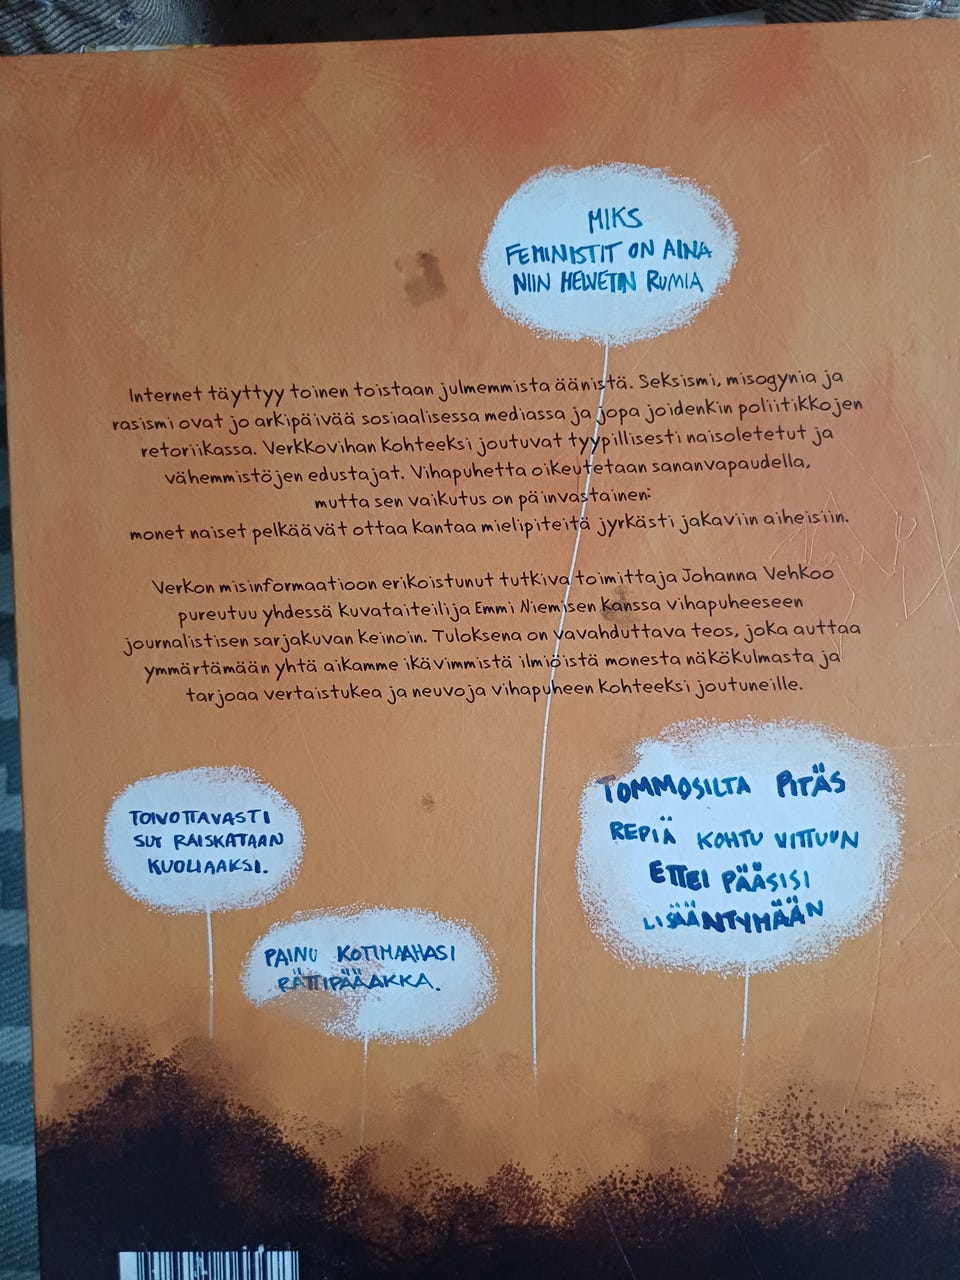 MIKS
FEMINISTIT ON AINA
NIIN HELVETIN RUMIA
Internet täyttyy toinen toistaan julmemmista äänistä. Seksismi, misogynia ja
rasismi ovat jo arkipäivää sosiaalisessa mediassa ja jopa joidenkin poliitikkojen
retoriikassa. Verkkovihan kohteeksi joutuvat tyypillisesti naisoletetut ja
vähemmistöjen edustajat. Vihapuhetta oikeutetaan sananvapaudella,
mutta sen vaikutus on päinvastainen:
monet naiset pelkäävät ottaa kantaa mielipiteitä jyrkästi jakaviin aiheisiin.
Verkon misinformaatioon erikoistunut tutkiva toimittaja Johanna Vehkoo
pureutuu yhdessä kuvataiteilija Emmi Niemisen kanssa vihapuheeseen
journalistisen sarjakuvan keinoin. Tuloksena on vavahduttava teos, joka auttaa
ymmärtämään yhtä aikamme ikävimmistä ilmiöistä monesta näkökulmasta ja
tarjoaa vertaistukea ja neuvoja vihapuheen kohteeksi joutuneille.
TOIVOTTAVASTI
SUT RAISKATAAN
KUOLIAAKSI.
TOMMOSILTA PITÄS
REPIÄ KOHTU VITTUUN
ETTEI PÄÄSISI
LISÄÄNTYMÄÄN
PAINU KOTIMAAHASI
RÄTTIPÄÄAKKA.